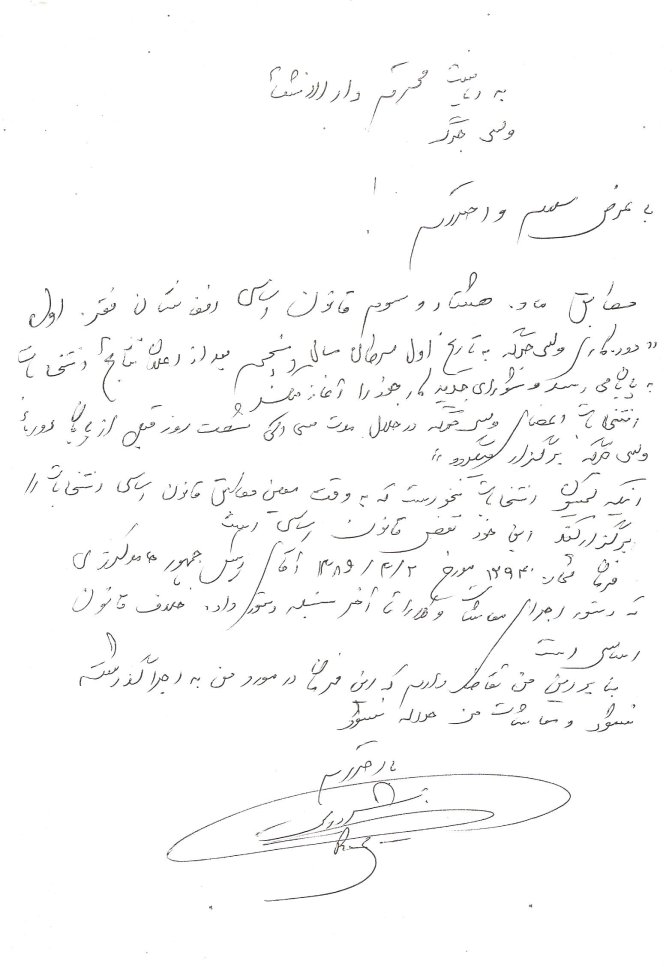 به ریاست محترم دارالانشاء
ولسی جرگه
با عرض سلام و احترام !
مطابق ماده هشتاد و سوم قانون اساسی افغانستان فقره اول
"دوره کاری ولسی جرگه به تاریخ اول سرطان سال پنجم بعد از اعلان نتایج انتخابات
به پایان می رسد و شورای جدید به کار خود آغاز میکند
انتخابات اعضای ولسی جرگه در خلال مدت سی الی شصت روز قبل از پایان دوره
ولسی جرگه برگزار میگردد"
اینکه کمیسیون انتخابات نتوانست که به وقت معین مطابق قانون اساسی انتخابات را
برگزار کند این خود نقض قانون اساسی است
فرمان شماره ۱۲۹۴۰ مورخ ۱۳۸۹/۴/۲ آقای رئیس جمهور حامد کرزی
که دستور اجرای معاشات وکلا را تا آخر سنبله دستور داده خلاف قانون
اساسی است
بنابرین من تقاضا دارم که این فرمان در مورد من به اجرا گذاشته
نشود و معاشات من حواله نشود
با احترام